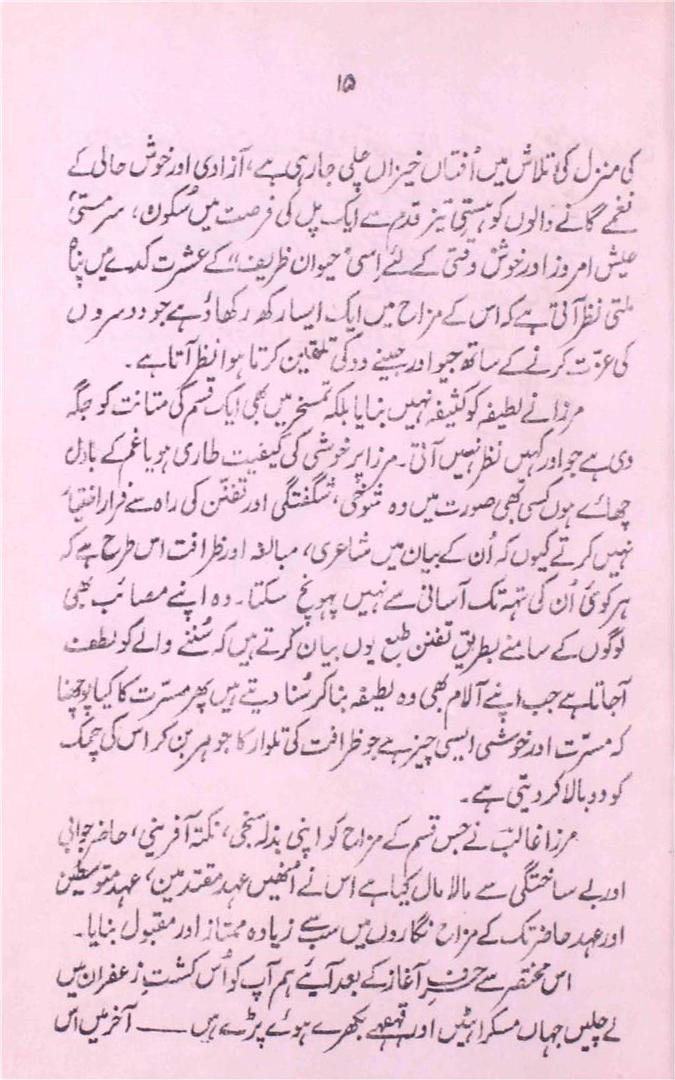 ۱۵
کی منزل کی تلاش میں اُفتاں خیزاں چلی جارہی ہے، آزادی اور خوش حالی کے
نغمے گانے والوں کو ہستیِ تیز قدم سے ایک پل کی فرصت میں سُکون، سرمستیٔ
عیش امروز اور خوش وقتی کے لئے اسی "حیوان ظریف" کے عشرت کدے میں پناہ
ملتی نظر آتی ہے کہ اس کے مزاح میں ایک ایسا رکھ رکھاؤ ہے جو دوسروں
کی عزّت کرنے کے ساتھ جیو اور جینے دو کی تلقین کرتا ہوا نظر آتا ہے۔
مرزا نے لطیفہ کو کثیفہ نہیں بنایا بلکہ تمسخر میں بھی ایک قسم کی متانت کو جگہ
دی ہے جو اور کہیں نظر نہیں آتی۔ مرزا پر خوشی کی کیفیت طاری ہو یا غم کے بادل
چھائے ہوں کسی بھی صورت میں وہ شوخی، شگفتگی اور تفنّن کی راہ سے فرار اختیار
نہیں کرتے کیوں کہ اُن کے بیان میں شاعری، مبالغہ اور ظرافت اس طرح ہے کہ
ہر کوئی اُن کی تہہ تک آسانی سے نہیں پہونچ سکتا۔ وہ اپنے مصائب بھی
لوگوں کے سامنے بطریقِ تفننِ طبع یوں بیان کرتے ہیں کہ سُننے والے کو لطف
آجاتا ہے جب اپنے آلام بھی وہ لطیفہ بنا کر سُنا دیتے ہیں پھر مسرّت کا کیا پوچھنا
کہ مسرّت اور خوشی ایسی چیز ہے جو ظرافت کی تلوار کا جوہر بن کر اس کی چمک
کو دوبالا کر دیتی ہے۔
مرزا غالبؔ نے جس قسم کے مزاح کو اپنی بذلہ سنجی، نکتہ آفرینی، حاضر جوابی
اور بے ساختگی سے مالا مال کیا ہے اس نے اُنھیں عہدِ متقدمین، عہدِ متوسطین
اور عہدِ حاضر تک کے مزاح نگاروں میں سب سے زیادہ ممتاز اور مقبول بنایا۔
اس مختصر سے حرفِ آغاز کے بعد آیئے ہم آپ کو اُس کشتِ زعفران میں
لے چلیں جہاں مسکراہٹیں اور قہقہے بکھرے ہوئے پڑے ہیں —— آخر میں اس